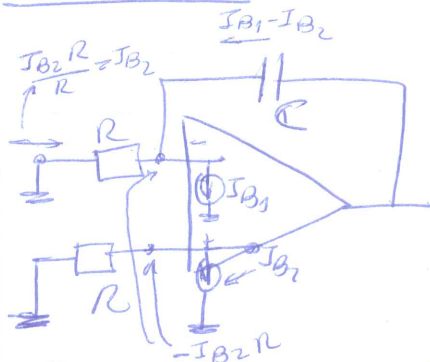 I_B1 - I_B2
I_B2 R / R = I_B2
C
R
-
I_B1
+
I_B2
R
-I_B2 R